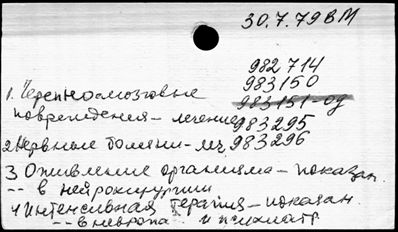 30.7.79 ВМ
982714
983150
1. Черепно-мозговые 983151-од
повреждения - лечение 983295
2. Нервные болезни - леч. 983296
3 Оживление организма - показан.
-- в нейрохирургии
4 Интенсивная терапия - показан.
-- в невропа. и психиатр.